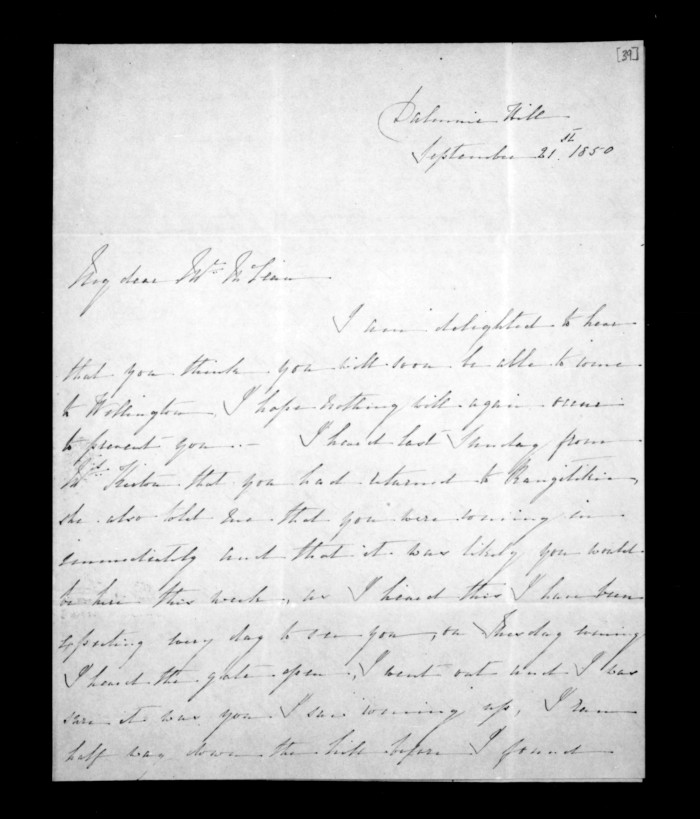 [39]
Dalmuir Hill
September 21st 1850
My dear Mr McLean
I am delighted to hear
that you think you will soon be able to come
to Wellington, I hope nothing will again occur
to prevent you. — I heard last Sunday from
Mrs that you had returned to Rangitikei,
she also told me that you were coming in
immediately and that it was likely you would
be here this week, as I heard this I have been
expecting every day to see you, on Tuesday evening
I heard the gate open, I went out and I was
sure it was you I saw coming up, I ran
half way down the hill before I found